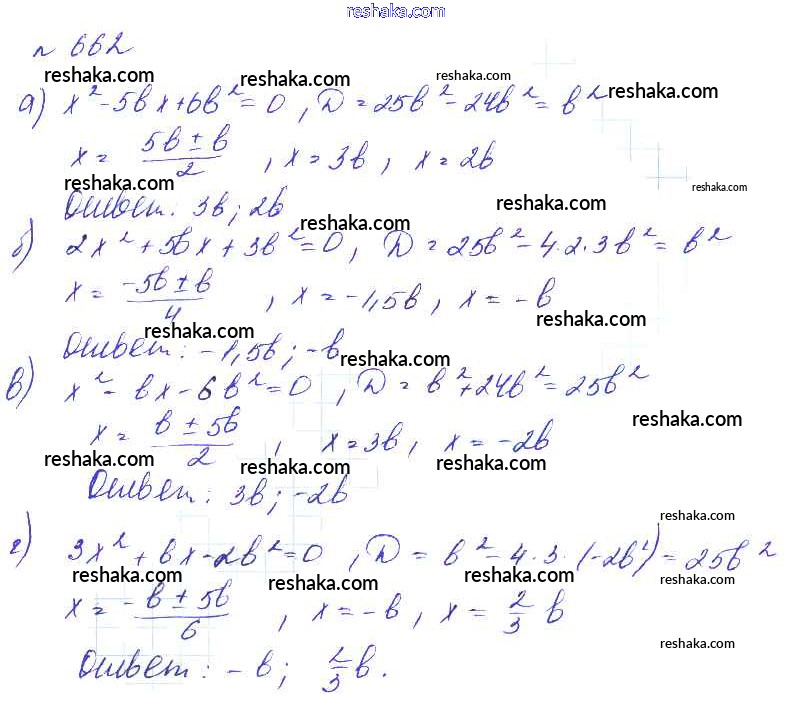 reshaka.com
№ 662
reshaka.com reshaka.com reshaka.com reshaka.com
а) x² - 5bx + 6b² = 0, D = 25b² - 24b² = b²
x = (5b ± b)/2, x = 3b, x = 2b
reshaka.com reshaka.com reshaka.com
Ответ: 3b; 2b
reshaka.com reshaka.com
б) 2x² + 5bx + 3b² = 0, D = 25b² - 4·2·3b² = b²
x = (-5b ± b)/4, x = -1,5b, x = -b
reshaka.com reshaka.com
Ответ: -1,5b; -b
reshaka.com
в) x² - bx - 6b² = 0, D = b² + 24b² = 25b²
x = (b ± 5b)/2, x = 3b, x = -2b
reshaka.com
reshaka.com reshaka.com reshaka.com
Ответ: 3b; -2b
reshaka.com
г) 3x² + bx - 2b² = 0, D = b² - 4·3·(-2b²) = 25b²
reshaka.com reshaka.com reshaka.com reshaka.com
x = (-b ± 5b)/6, x = -b, x = 2/3 b
reshaka.com
Ответ: -b; 2/3 b.